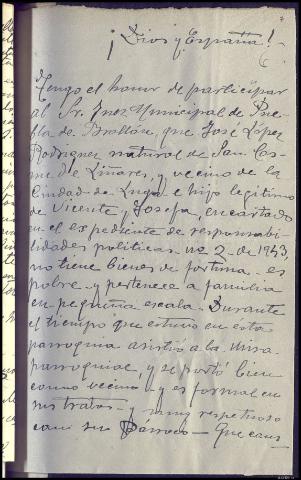 ¡Dios y España!
Tengo el honor de participar
al Sr. Juez Municipal de Pue-
bla de Brollón, que José López
Rodriguez natural de San Cos-
me de Liñares, y vecino de la
Ciudad de Lugo e hijo legitimo
de Vicente y Josefa, encartado
en el expediente de responsabi-
lidades politicas nº 2 de 1943,
no tiene bienes de fortuna - es
pobre - y pertenece a familia
en pequeña escala. Durante
el tiempo que estuvo en esta
parroquia asistió a la misa
parroquial, y se portó bien
como vecino - y es formal en
sus tratos - y muy respetuoso
con su Parroco - Que cons